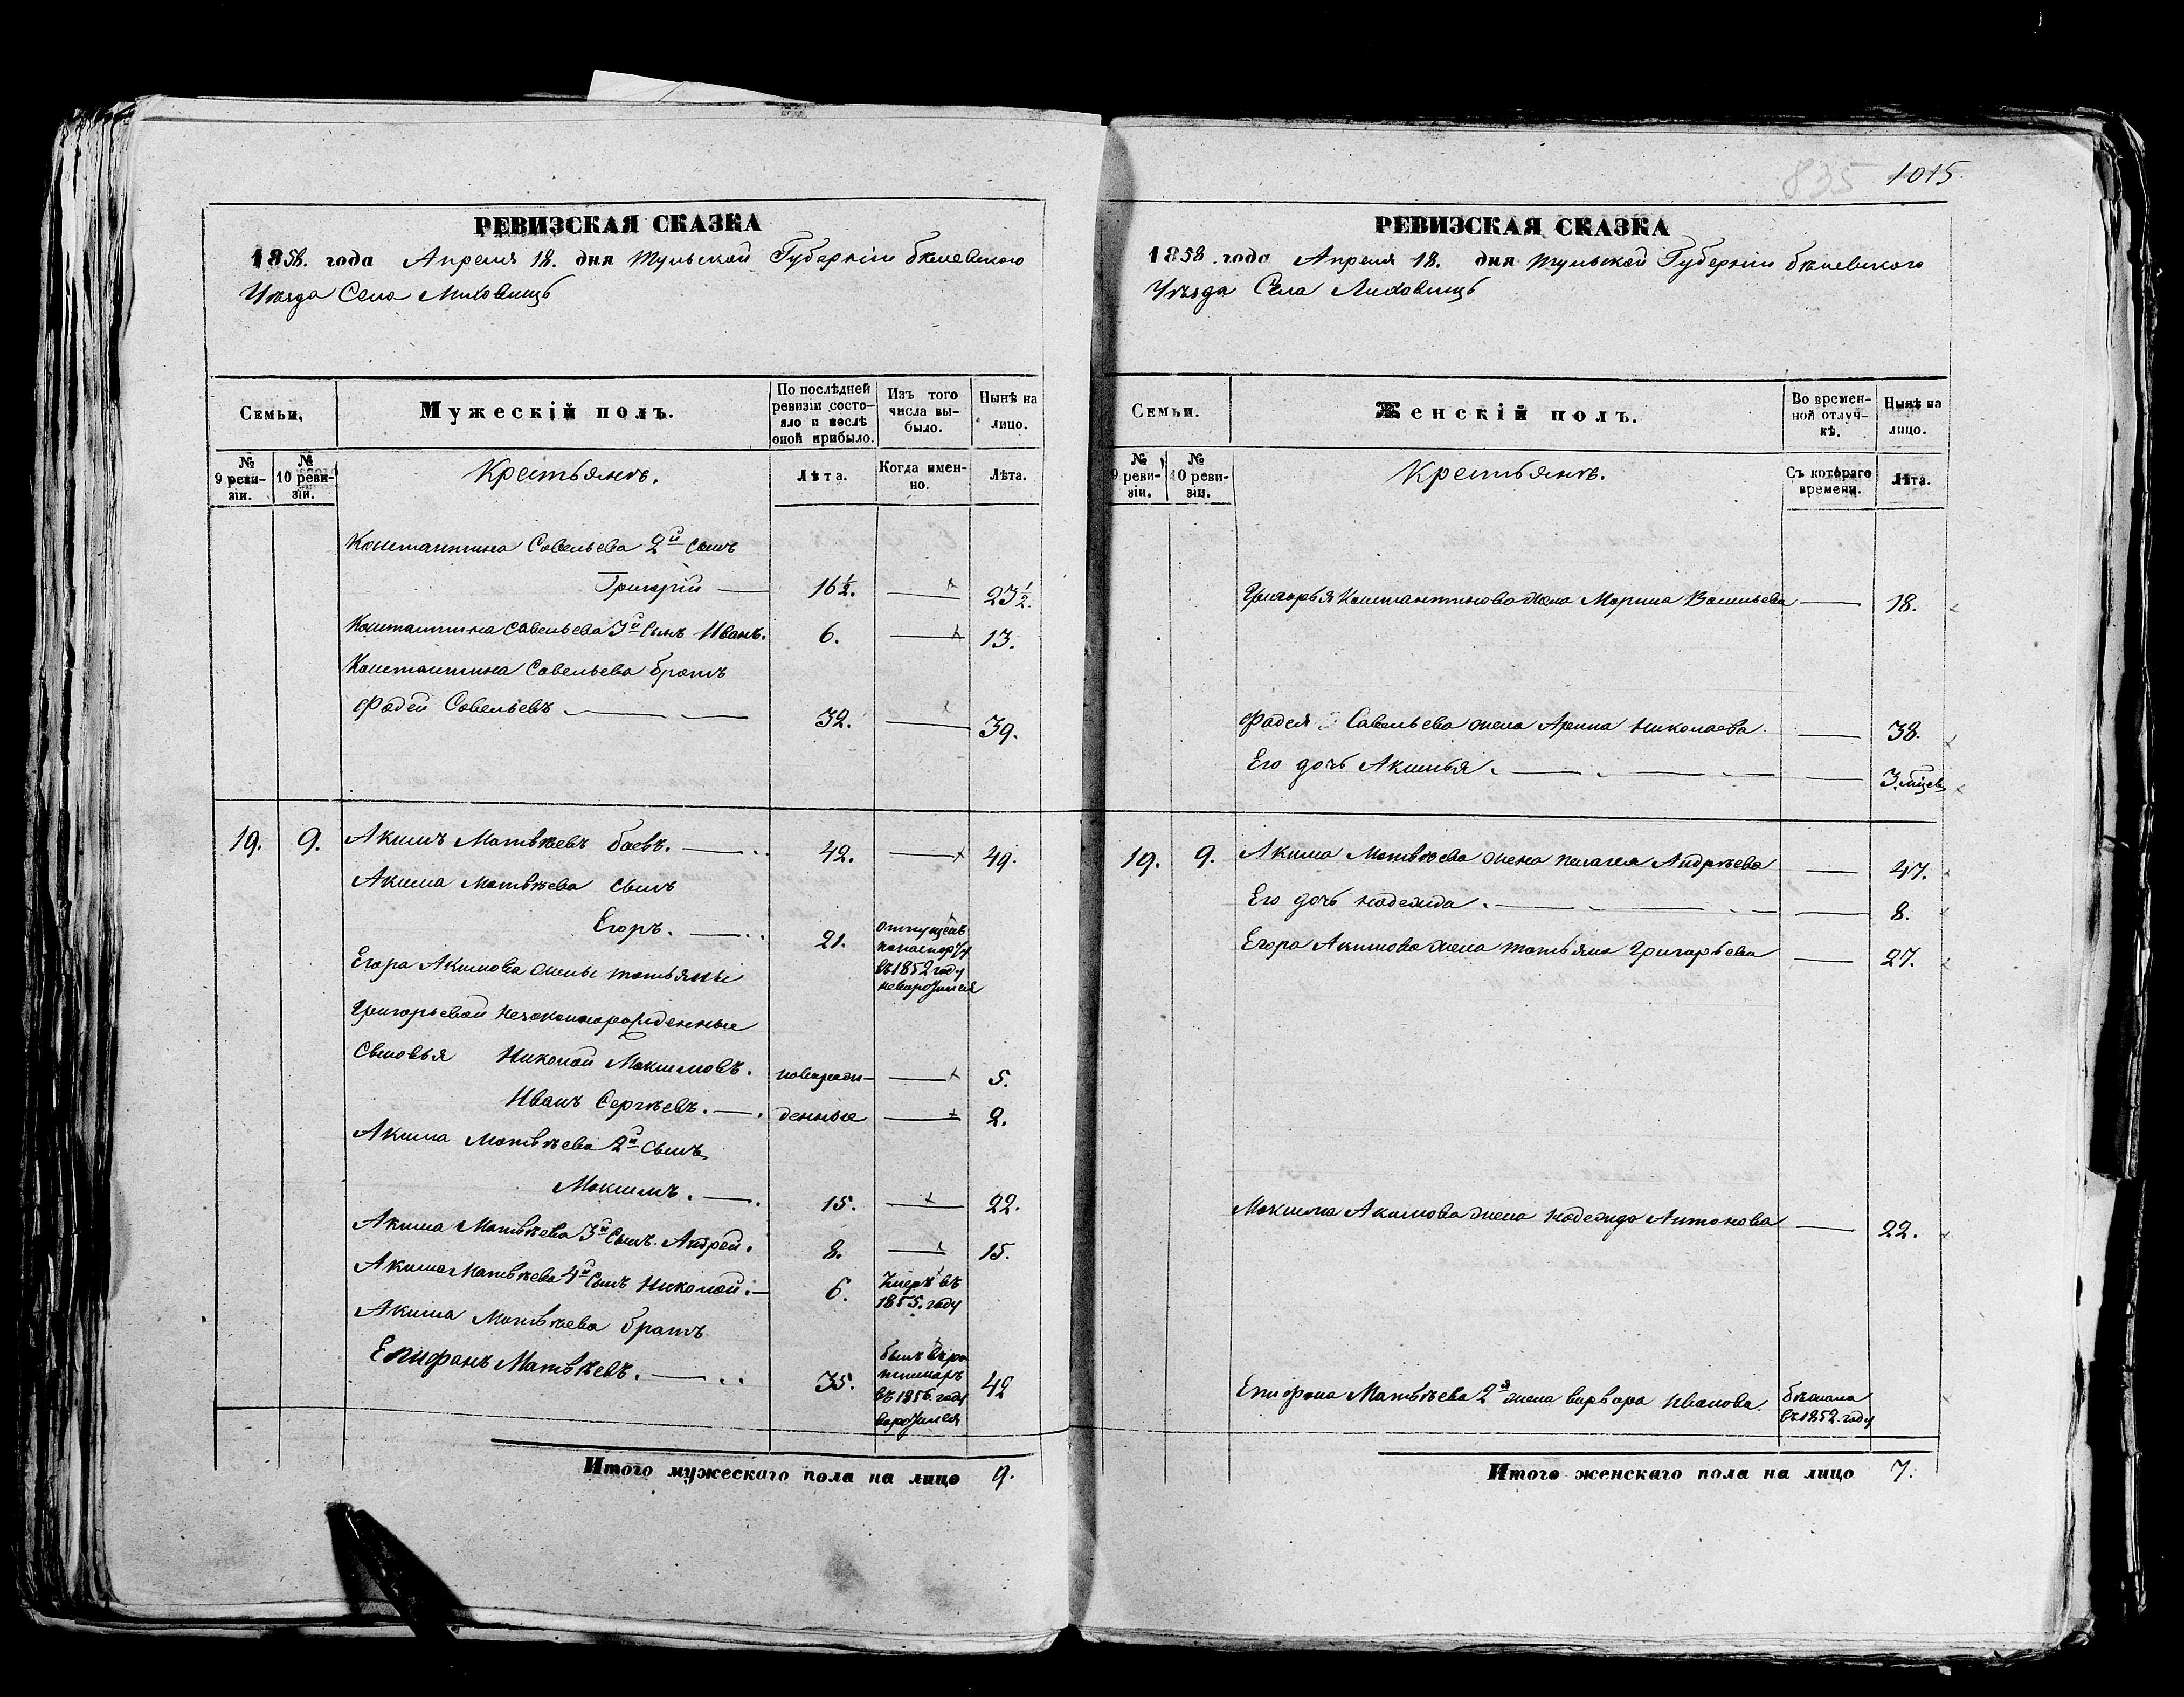 835 1015
РЕВИЗСКАЯ СКАЗКА
1858. года Апреля 18. дня Тульской Губерніи бѣлевского
Уѣзда Села Миховищъ
Семьи, Мужескій полъ. По послѣдней ревизіи состояло и послѣ оной прибыло. Изъ того числа выбыло. Нынѣ на лицо.
№ 9 ревизіи. № 10 ревизіи. Крестьянъ. Лѣта. Когда именно. Лѣта.
Константина Савельева 2й Сынъ
Григорій — 16½. — 23½.
Константина Савельева 3й Сынъ Иванъ. 6. — 13.
Константина Савельева братъ
Фадей Савельевъ — 32. — 39.
19. 9. Акимъ Матвѣевъ баевъ. — 42. — 49.
Акима Матвѣева сынъ
Егоръ. — 21. отпущенъ
въ 1852 году
Егора Акимова жены татьяны
Григорьевой незаконнорожденные
Сыновья Николай Максимовъ. новорож- — 5.
Иванъ Сергѣевъ. — денные — 2.
Акима Матвѣева 2й Сынъ
Максимъ. — 15. — 22.
Акима Матвѣева 3й Сынъ. Андрей. 8. — 15.
Акима Матвѣева 4й Сынъ Николай. — 6. Умеръ въ
1855. году
Акима Матвѣева братъ
Епифанъ Матвѣевъ. — 35. 42
въ 1856. году
Итого мужескаго пола на лицо 9.
РЕВИЗСКАЯ СКАЗКА
1858 года Апреля 18. дня Тульской Губерніи бѣлевского
Уѣзда Села Миховищъ
Семьи. Женскій полъ. Во временной отлучкѣ. Нынѣ на лицо.
№ 9 ревизіи. № 10 ревизіи. Крестьянъ. Съ котораго времени. Лѣта.
Григорья Константинова жена Марина Васильева — 18.
Фадея Савельева жена Арина Николаева. — 38.
Его дочь Акилина. — 3. мѣсев
19. 9. Акима Матвѣева жена пелагея Андрѣева — 47.
Его дочь надежда. — 8.
Егора Акимова жена татьяна Григорьева — 27.
Максима Акимова жена надежда Антонова — 22.
Епифана Матвѣева 2й жена варвара Иванова. бѣжала
въ 1852. году
Итого женскаго пола на лицо 7.